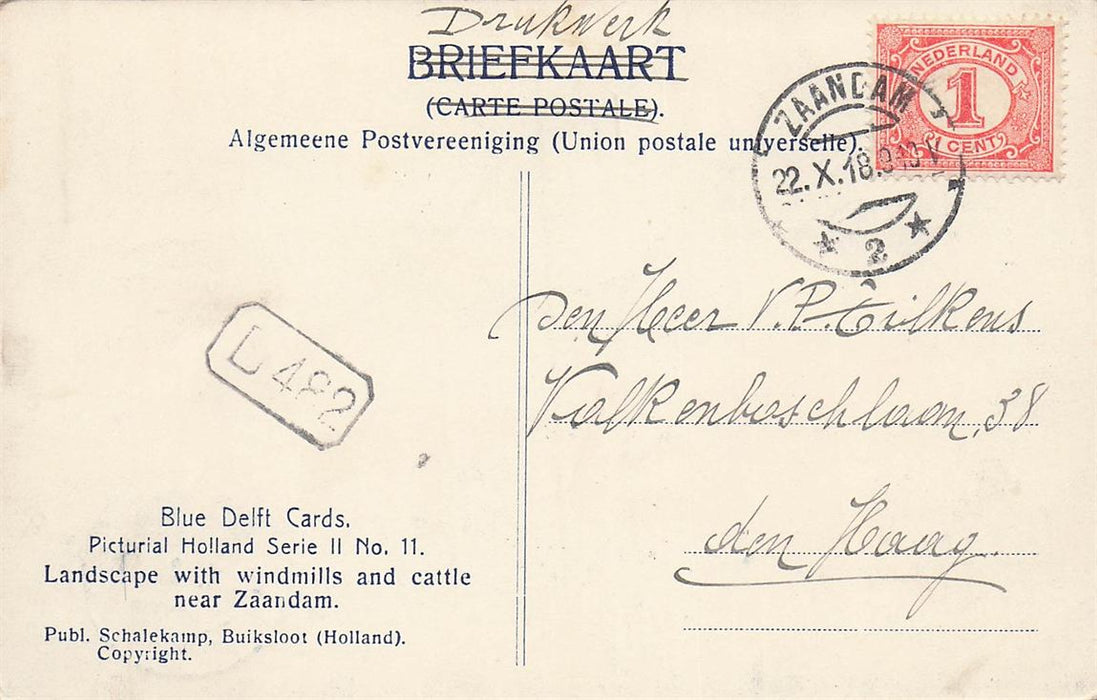 Drukwerk
BRIEFKAART
(CARTE POSTALE).
Algemeene Postvereeniging (Union postale universelle).
NEDERLAND
1
(1 CENT)
ZAANDAM
22.X.18.
2
den Heer V.P. Tilkens
Valkenboschlaan, 38
den Haag.
D 482
Blue Delft Cards.
Picturial Holland Serie II No. 11.
Landscape with windmills and cattle
near Zaandam.
Publ. Schalekamp, Buiksloot (Holland).
Copyright.